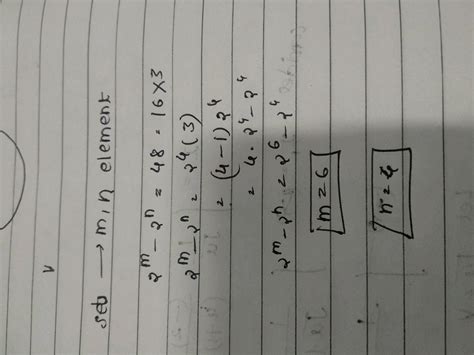 set → m, n element
2^m - 2^n = 48 = 16 × 3
2^m - 2^n = 2^4 (3)
= (4-1) 2^4
= 4 · 2^4 - 2^4
2^m - 2^n = 2^6 - 2^4
m = 6
n = 4